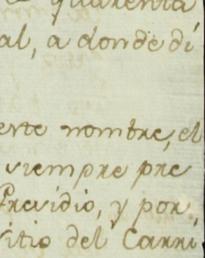 quarenta
al, a donde di
erte nombre, el
siempre pre
Presidio, y por
sitio del Carri